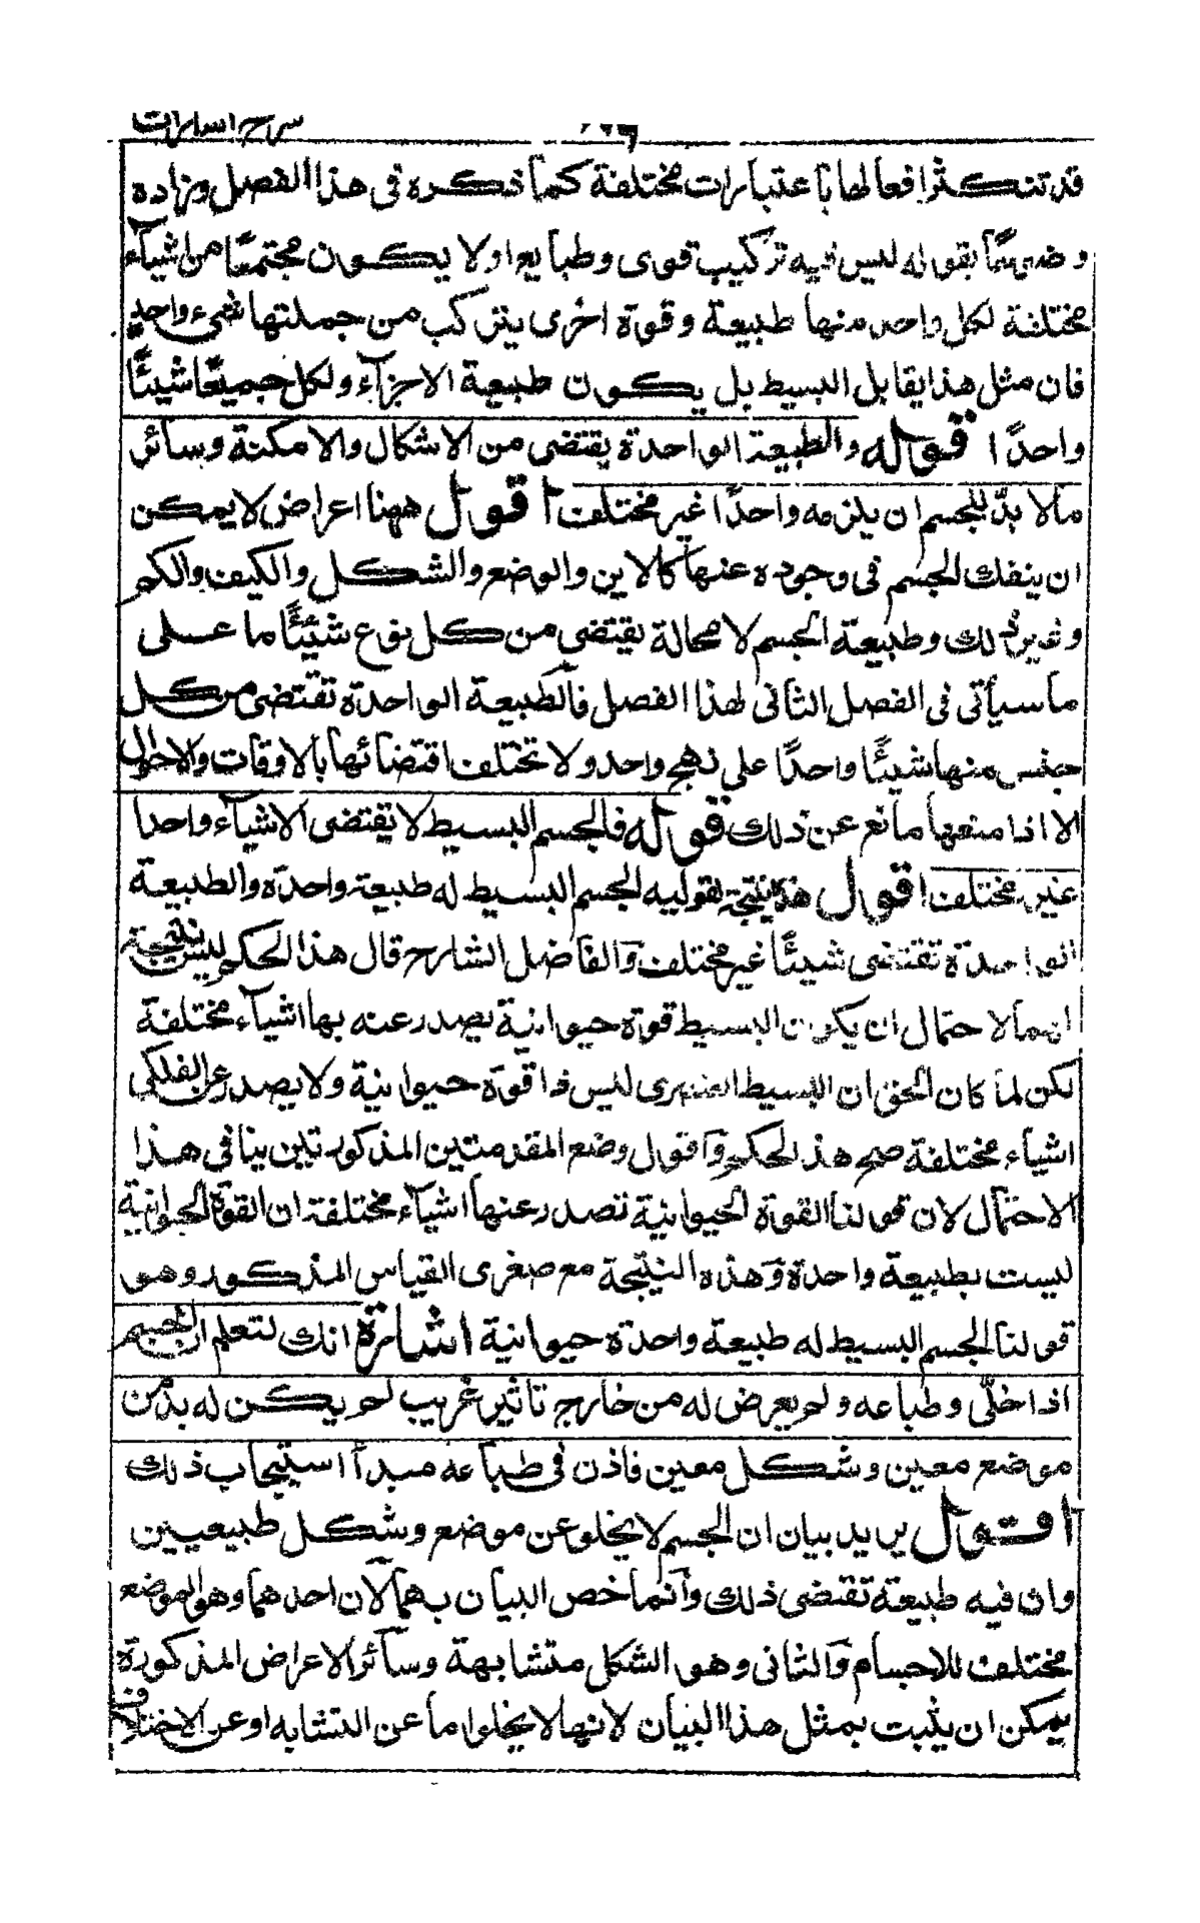 شرح اشارات
قد تتكثر افعالها باعتبارات مختلفة كما ذكره فى هذا الفصل وزاده
بقوله ليس فيه تركيب قوى وطبايع اولا يكون مجتمعًا من اشيآء
مختلفة لكل واحد منها طبيعة وقوة اخرى يتركب من جملتها شىء واحد
فان مثل هذا يقابل البسيط بل يكون طبيعة الاجزآء ولكل جميعًا شيئًا
واحدًا قوله والطبيعة الواحدة يقتضى من الاشكال والامكنة وسائر
مالا بدّ للجسم ان يلزمه واحدًا غير مختلف اقول ههنا اعراض لا يمكن
ان ينفك الجسم فى وجوده عنها كالاين والوضع والشكل والكيف والكم
وغير ذلك وطبيعة الجسم لا محالة يقتضى من كل نوع شيئًا ما على
ما سيأتى فى الفصل الثانى لهذا الفصل فالطبيعة الواحدة تقتضى من كل
جنس منها شيئًا واحدًا على نهج واحد ولا تختلف اقتضائها بالاوقات والاحوال
الا اذا منعها مانع عن ذلك قوله فالجسم البسيط لا يقتضى الا شيآء واحدا
غير مختلف اقول هذه نتيجة لقوليه الجسم البسيط له طبيعة واحدة والطبيعة
الواحدة تقتضى شيئًا غير مختلف والفاضل الشارح قال هذا الحكم ليس نتيجة
لهما لاحتمال ان يكون البسيط قوة حيوانية يصدر عنه بها اشيآء مختلفة
لكن لما كان الحق ان البسيط العنصرى ليس ذا قوة حيوانية ولا يصدر عن الفلكى
اشيآء مختلفة صح هذا الحكم واقول وضع المقدمتين المذكورتين ينافى هذا
الاحتمال لان قولنا القوة الحيوانية تصدر عنها اشيآء مختلفة ان القوة الحيوانية
ليست بطبيعة واحدة وهذه النتيجة مع صغرى القياس المذكور وهو
قولنا الجسم البسيط له طبيعة واحدة حيوانية اشارة انك لتعلم ان الجسم
اذا خلّى وطباعه ولم يعرض له من خارج تاثير غريب لم يكن له بد من
موضع معين وشكل معين فاذن فى طباعه مبدأ استيجاب ذلك
اقول يريد بيان ان الجسم لا يخلو عن موضع وشكل طبيعيين
وان فيه طبيعة تقتضى ذلك وانما خص البيان بهما لان احدهما وهو الموضع
مختلف للاجسام والثانى وهو الشكل متشابهة وسآئر الاعراض المذكورة
يمكن ان يثبت بمثل هذا البيان لانها لا يخلوا ما عن التشابه او عن الاختلاف